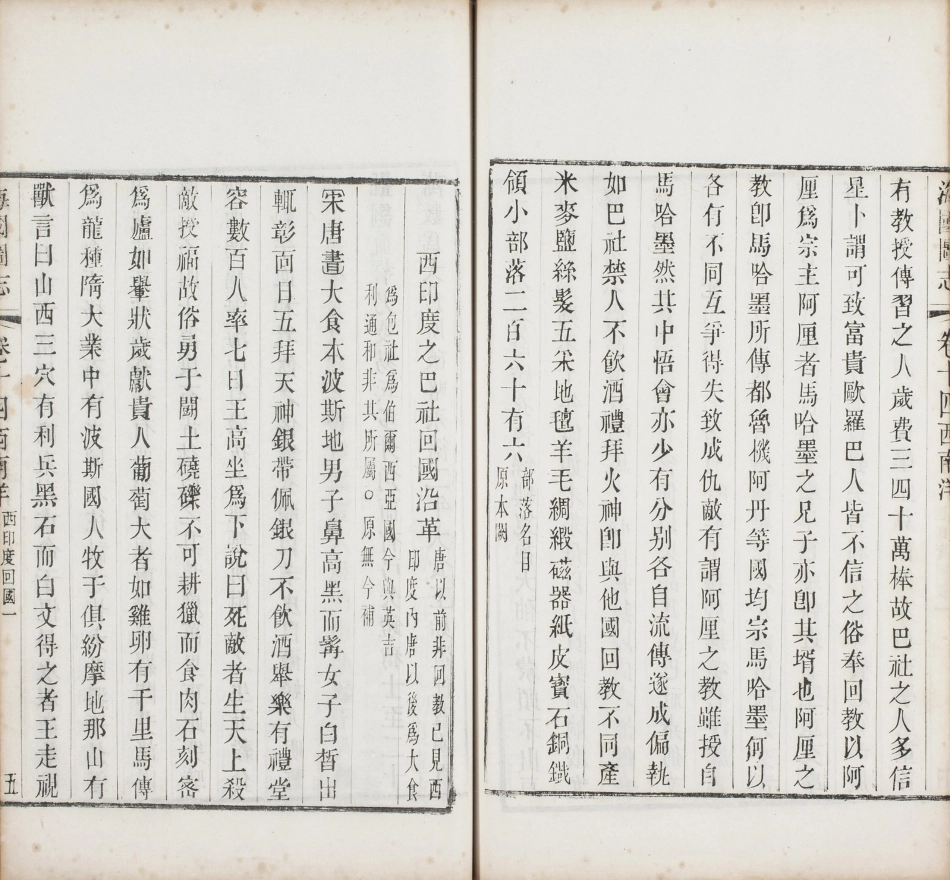 海國圖志 卷十四西南洋
有教授傳習之人歲費三四十萬棒故巴社之人多信
星卜謂可致富貴歐羅巴人皆不信之俗奉回教以阿
厘爲宗主阿厘者馬哈墨之兄子亦卽其壻也阿厘之
教卽馬哈墨所傳都魯機阿丹等國均宗馬哈墨何以
各有不同互爭得失致成仇敵有謂阿厘之教雖授自
馬哈墨然其中悟會亦少有分别各自流傳遂成偏執
如巴社禁人不飮酒禮拜火神卽與他國回教不同產
米麥鹽絲髮五采地氊羊毛綢緞磁器紙皮寶石銅鐵
領小部落二百六十有六部落名目
原本闕
西印度之巴社回國沿革唐以前非回教已見西
印度內唐以後爲大食
爲包社爲伯爾西亞國今與英吉
利通和非其所屬○原無今補
宋唐書大食本波斯地男子鼻高黑而髯女子白皙出
輒彰面日五拜天神銀帶佩銀刀不飮酒舉樂有禮堂
容數百人率七日王高坐爲下說曰死敵者生天上殺
敵授福故俗勇于鬬土磽礫不可耕獵而食肉石刻窰
爲廬如轝狀歲獻貴人葡萄大者如雞卵有千里馬傳
爲龍種隋大業中有波斯國人牧于俱紛摩地那山有
獸言曰山西三穴有利兵黑石而白文得之者王走視
海國圖志 卷十四西南洋 西印度回國一 五